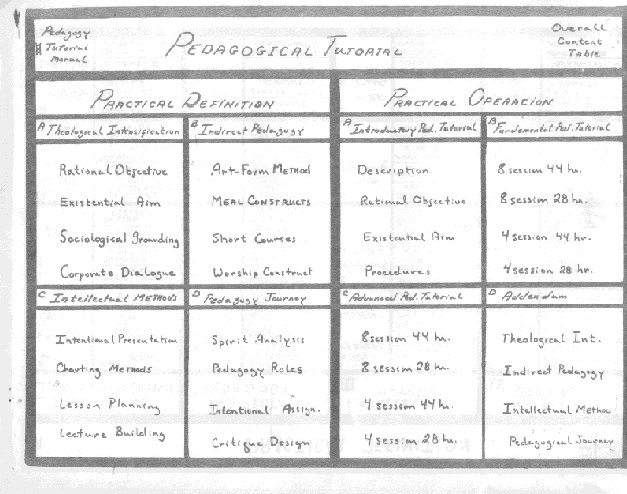 Pedagogy
Tutorial
Manual
PEDAGOGICAL TUTORIAL
Overall
Content
Table
PRACTICAL DEFINITION
PRACTICAL OPERACION
A Theological Intensification
B Indirect Pedagogy
A Introductory Ped. Tutorial
B Fundamental Ped. Tutorial
Rational Objective
Art-Form METHOD
Description
8 session 44 hr.
Existential Aim
MEAL CONSTRUCTS
Rational Objective
8 session 28 hr.
Sociological Grounding
Short Courses
Existential Aim
4 session 44 hr.
Corporate Dialogue
Worship Construct
Procedures
4 session 28 hr.
C Intellectual METHODS
D Pedagogy Journey
C Advanced Ped. Tutorial
D Addendum
Intentional Presentation
Spirit Analysis
8 session 44 hr.
Theological Int.
Charting Methods
Pedagogy Roles
8 session 28 hr.
Indirect Pedagogy
Lesson Planning
Intentional Assign.
4 session 44 hr.
Intellectual Method
Lecture Building
Critique Design
4 session 28 hr.
Pedagogical Journey